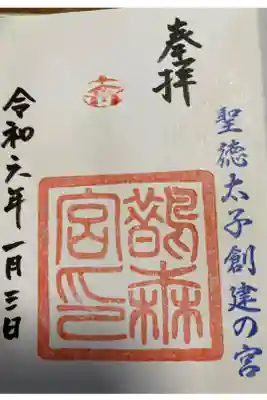 聖徳太子創建の宮
奉拝
鵲森
宮印
令和六年一月三日